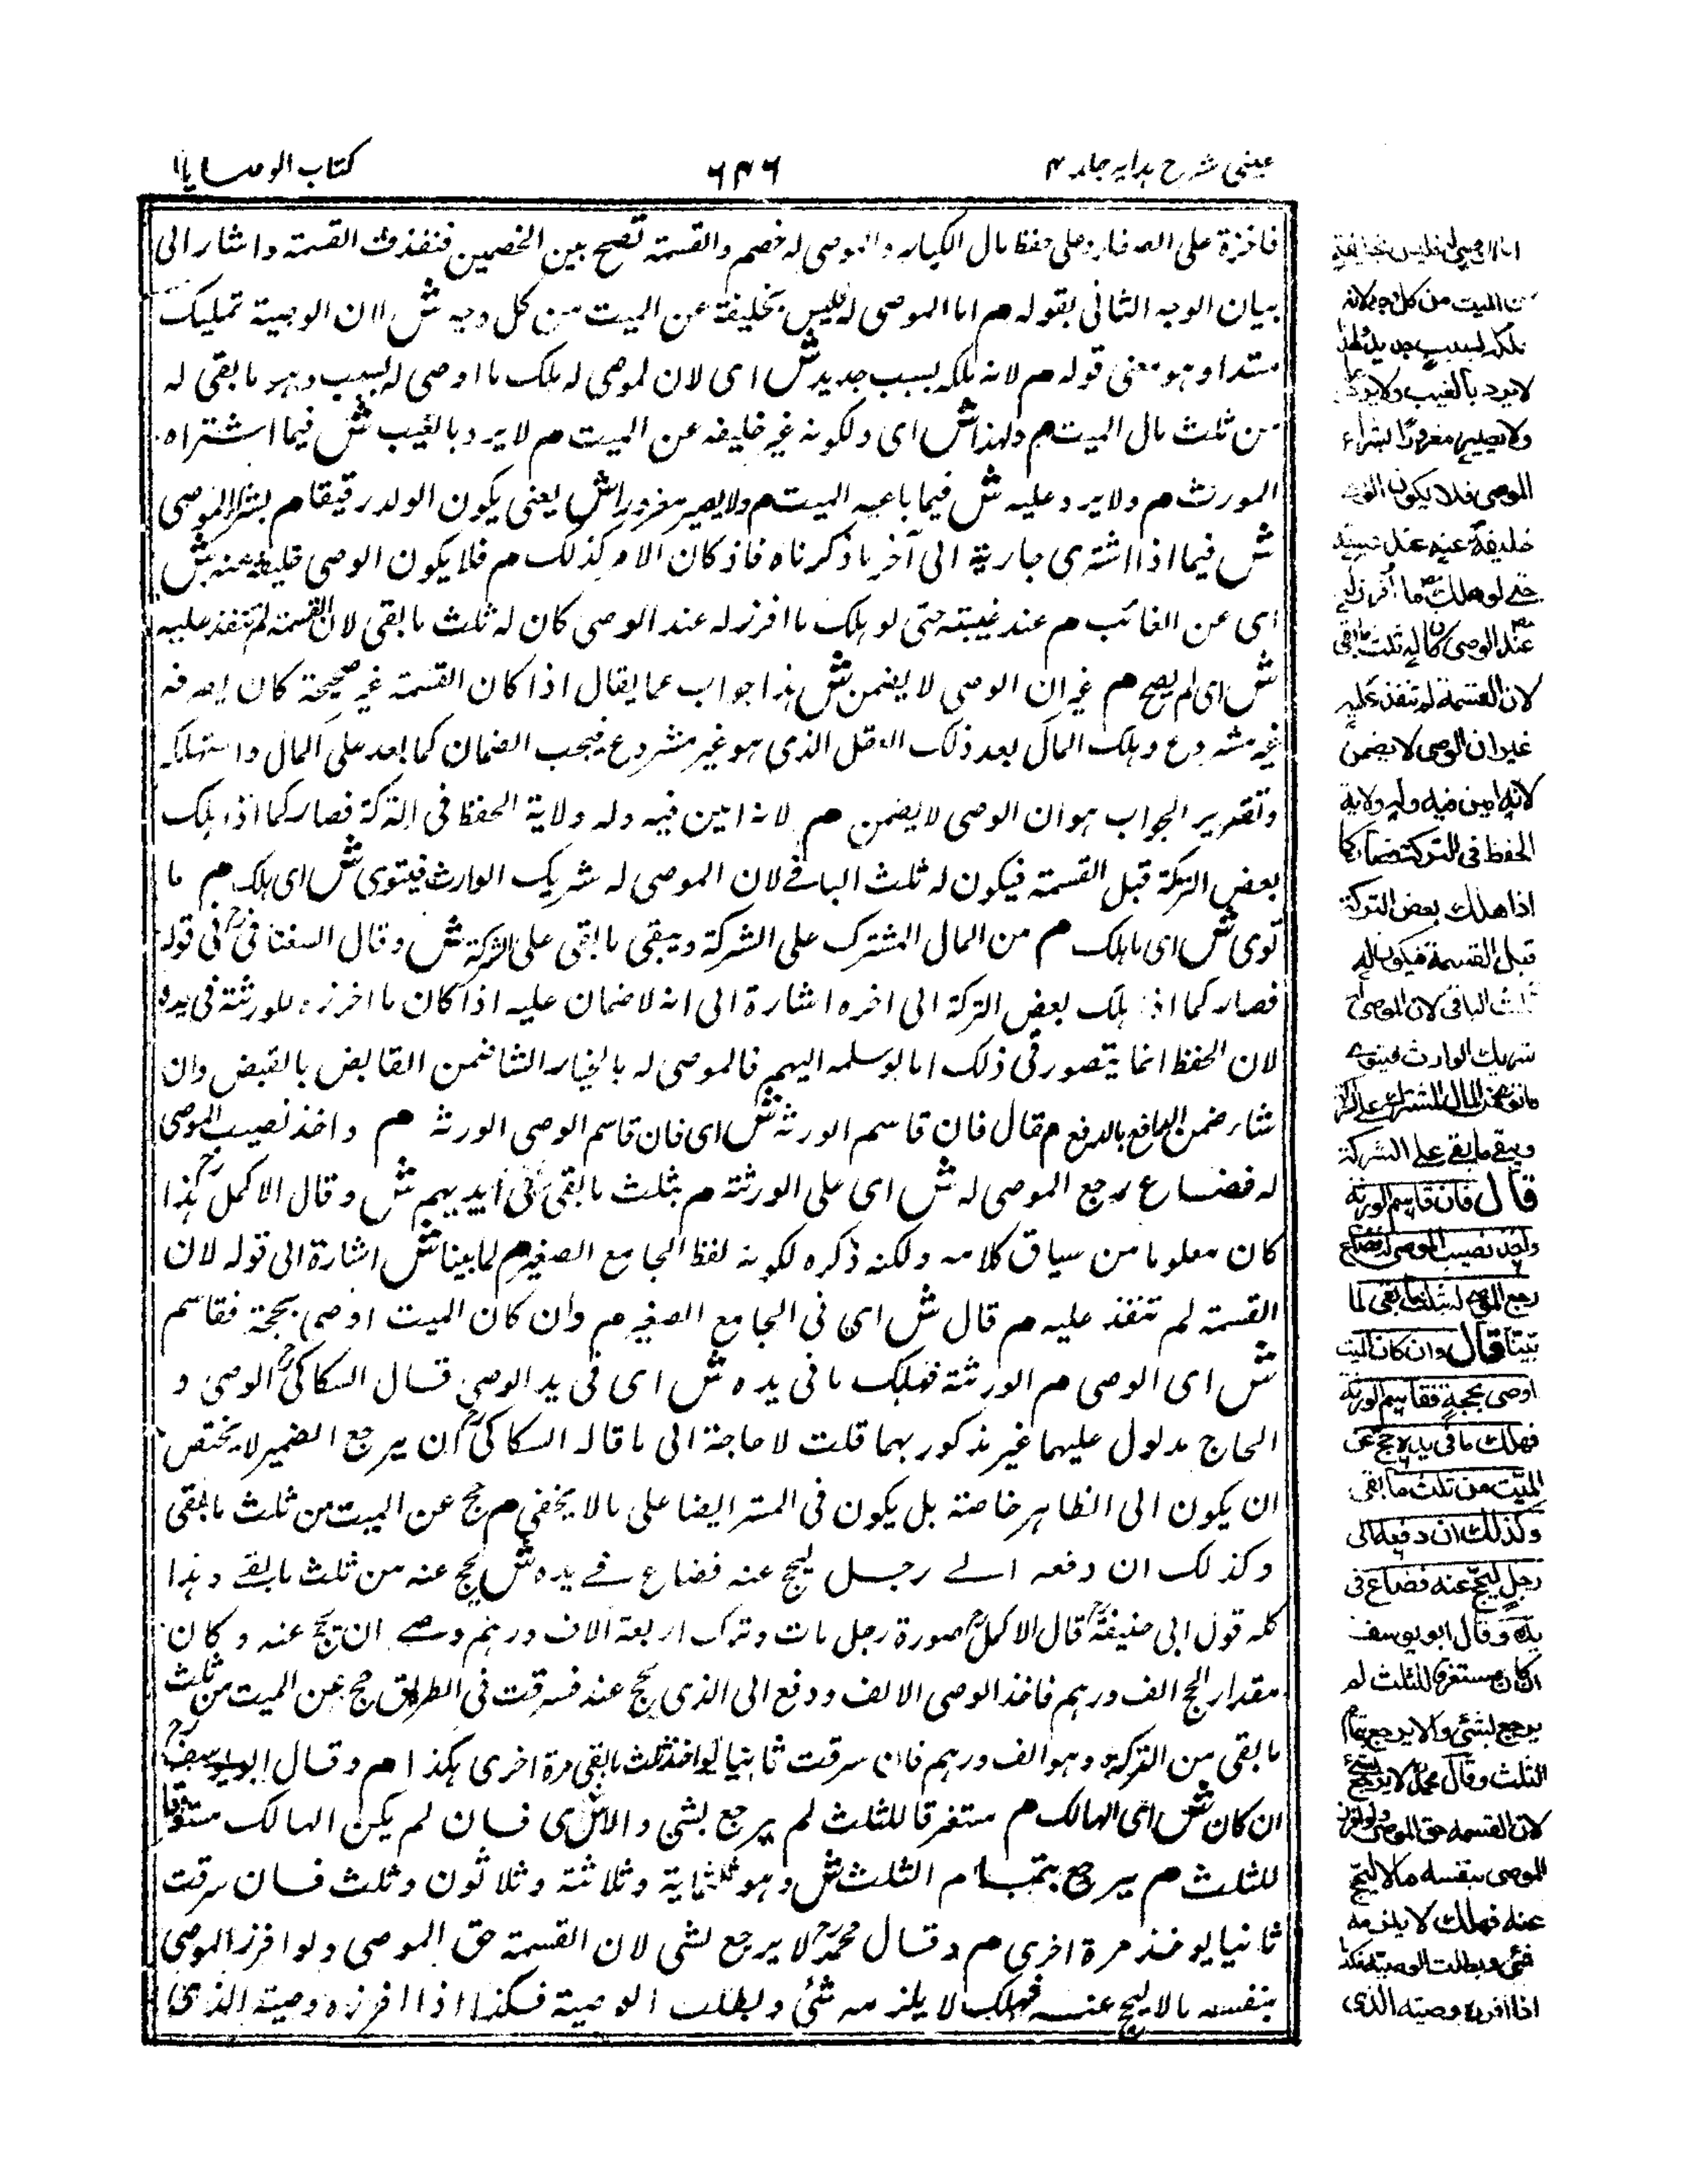 عینی شرح ہدایہ جلد ۴
۶۴۶
کتاب الوصایا
نافذة على الصغار وعلى حفظ مال الكبار والموصى له خصم والقسمة تصح بين الخصمين فنفذت القسمة واشار الى
بيان الوجه الثانى بقوله م اما الموصى له فليس بخليفة عن الميت من كل وجه ش لان الوصية تمليك
مبتدا وهو معنى قوله م لانه ملكه بسبب جديد ش اى لان لموصى له ملك ما اوصى له بسبب وهو ما بقى له
من ثلث مال الميت م ولهذا ش اى ولكونه غير خليفه عن الميت م لا يرد بالعيب ش فيما اشتراه
المورث م ولا يرد عليه ش فيما باعه الميت م ولا يصير مغرورا ش يعنى يكون الولد رقيقا م بشراء الموصى
ش فيما اذا اشترى جارية الى آخر ما ذكرناه فاذ كان الامر كذلك م فلا يكون الوصى خليفة عنه ش
اى عن الغائب م عند غيبته حتى لو هلك ما افرز له عند الوصى كان له ثلث ما بقى لان القسمة لم تنفذ عليه
ش اى لم يصح م غير ان الوصى لا يضمن ش هذا جواب عما يقال اذا كان القسمة غير صحيحة كان يصرفه
غير مشروع وهلك المال بعد ذلك الذى هو غير مشروع فيجب الضمان كما بعد على المال واستهلكه
وتقرير الجواب هو ان الوصى لا يضمن م لانه امين فيه وله ولاية الحفظ فى التركة فصار كما اذا هلك
بعض التركة قبل القسمة فيكون له ثلث الباقى لان الموصى له شريك الوارث فيتوى ش اى هلك م ما
توى ش اى ما هلك م من المال المشترك على الشركة ويبقى ما بقى على الشركة ش وقال السغناقى فى قوله
فصار كما اذا هلك بعض التركة الى اخره اشارة الى انه لا ضمان عليه اذا كان ما افرزه للورثة فى يده
لان الحفظ انما يتصور فى ذلك اما لو سلمه اليهم فالموصى له بالخيار ان شاء ضمن القابض بالقبض وان
شاء ضمن الدافع بالدفع م قال فان قاسم الورثة ش اى فان قاسم الوصى الورثة م واخذ نصيب الموصى
له فضاع رجع الموصى له ش اى على الورثة م بثلث ما بقى فى ايديهم ش وقال الاكمل هذا
كان معلوما من سياق كلامه ولكنه ذكره لكونه لفظ الجامع الصغير م لما بينا ش اشارة الى قوله لان
القسمة لم تنفذ عليه م قال ش اى فى الجامع الصغير م وان كان الميت اوصى بحجة فقاسم
ش اى الوصى م الورثة فهلك ما فى يده ش اى فى يد الوصى قال السكاكى الوصى و
الحاج مدلول عليهما غير مذكور بهما قلت لا حاجة الى ما قاله السكاكى ان يرجع الضمير لا يختص
ان يكون الى الظاهر خاصة بل يكون فى المستر ايضا على ما لا يخفى م حج عن الميت من ثلث ما بقى
وكذلك ان دفعه الى رجل ليحج عنه فضاع فى يده ش يحج عنه من ثلث ما بقى وهذا
كله قول ابى حنيفة قال الاكمل صورة رجل مات وترك اربعة آلاف درهم وصى ان يحج عنه وكان
مقدار الحج الف درهم فاخذ الوصى الالف ودفع الى الذى يحج عنه فسرقت فى الطريق حج عن الميت من ثلث
ما بقى من التركة وهو الف درهم فان سرقت ثانيا يؤاخذ ثلث ما بقى مرة اخرى هكذا م وقال ابو يوسف
ان كان ش اى الهالك م مستغرقا للثلث لم يرجع بشئ والا ش اى فان لم يكن الهالك مستغرقا
للثلث م يرجع بتمام الثلث ش وهو ثلثماية وثلاثة وثلاثون وثلث فان سرقت
ثانيا يوخذ مرة اخرى م وقال محمد لا يرجع بشئ لان القسمة حق الموصى ولو افرز الموصى
بنفسه مالا ليحج عنه فهلك لا يلزمه شئ وبطلت الوصية فكذا اذا افرزه وصيه الذى
اما الموصى له فليس بخليفة
عن الميت من كل وجه لانه
ملكه بسبب جديد ولهذا
لا يرد بالعيب ولا يرد عليه
ولا يصير مغرورًا بشراء
الموصى فلا يكون الوصى
خليفة عنه عند غيبته
حتى لو هلك ما افرز له
عند الوصى كان له ثلث ما بقى
لان القسمة لم تنفذ عليه
غير ان الوصى لا يضمن
لانه امين فيه وله ولاية
الحفظ فى التركة فصار كما
اذا هلك بعض التركة
قبل القسمة فيكون له
ثلث الباقى لان الموصى له
شريك الوارث فيتوى
ما توى من المال المشترك على الشركة
ويبقى ما بقى على الشركة
قال فان قاسم الورثة
واخذ نصيب الموصى له فضاع
رجع الموصى له بثلث ما بقى لما
بينا قال وان كان الميت
اوصى بحجة فقاسم الورثة
فهلك ما فى يده حج عن
الميت من ثلث ما بقى
وكذلك ان دفعه الى
رجل ليحج عنه فضاع فى
يده وقال ابو يوسف
ان كان مستغرقا للثلث لم
يرجع بشئ والا يرجع بتمام
الثلث وقال محمد لا يرجع بشئ
لان القسمة حق الموصى ولو افرز
الموصى بنفسه مالا ليحج
عنه فهلك لا يلزمه
شئ وبطلت الوصية فكذا
اذا افرزه وصيه الذى